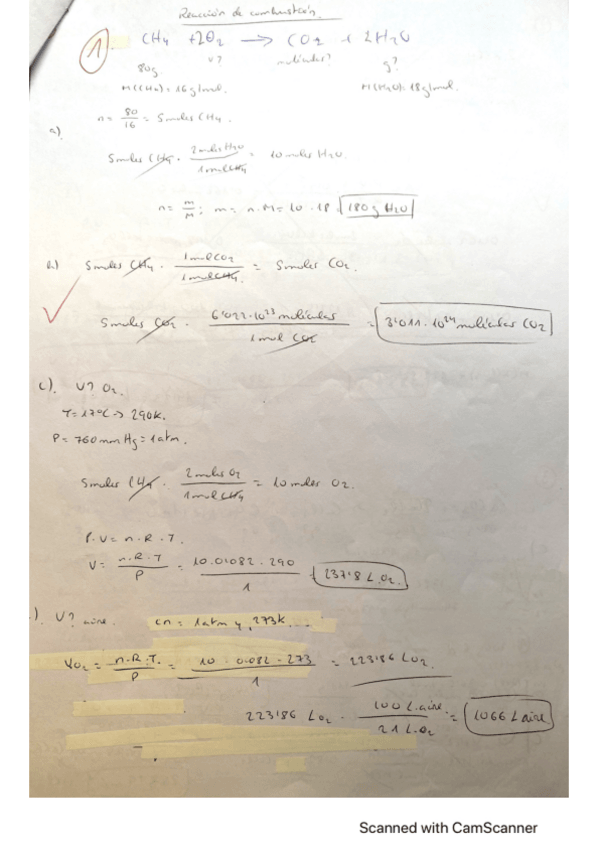 Reacción de combustión.
1 CH4 + 2O2 → CO2 + 2H2O
80g. V? moléculas? g?
M(CH4) = 16g/mol. M(H2O) = 18g/mol.
n = 80/16 = 5 moles CH4.
a)
5 moles CH4 · 2 moles H2O / 1 mol CH4 = 10 moles H2O.
n = m/M; m = n·M = 10 · 18 180g H2O
b) 5 moles CH4 · 1 mol CO2 / 1 mol CH4 = 5 moles CO2.
5 moles CO2 · 6'022·10^23 moléculas / 1 mol CO2 = 3'011·10^24 moléculas CO2
c). V? O2.
T = 17ºC → 290K.
P = 760 mm Hg = 1 atm.
5 moles CH4 · 2 moles O2 / 1 mol CH4 = 10 moles O2.
P·V = n·R·T.
V = n·R·T / P = 10·0'082·290 / 1 = 237'8 L O2.
). V? aire. cn = 1 atm y 273K...
VO2 = n·R·T. / P = 10 · 0'082 · 273 / 1 = 223'86 L O2.
223'86 L O2 · 100 L aire / 21 L O2 = 1066 L aire
Scanned with CamScanner